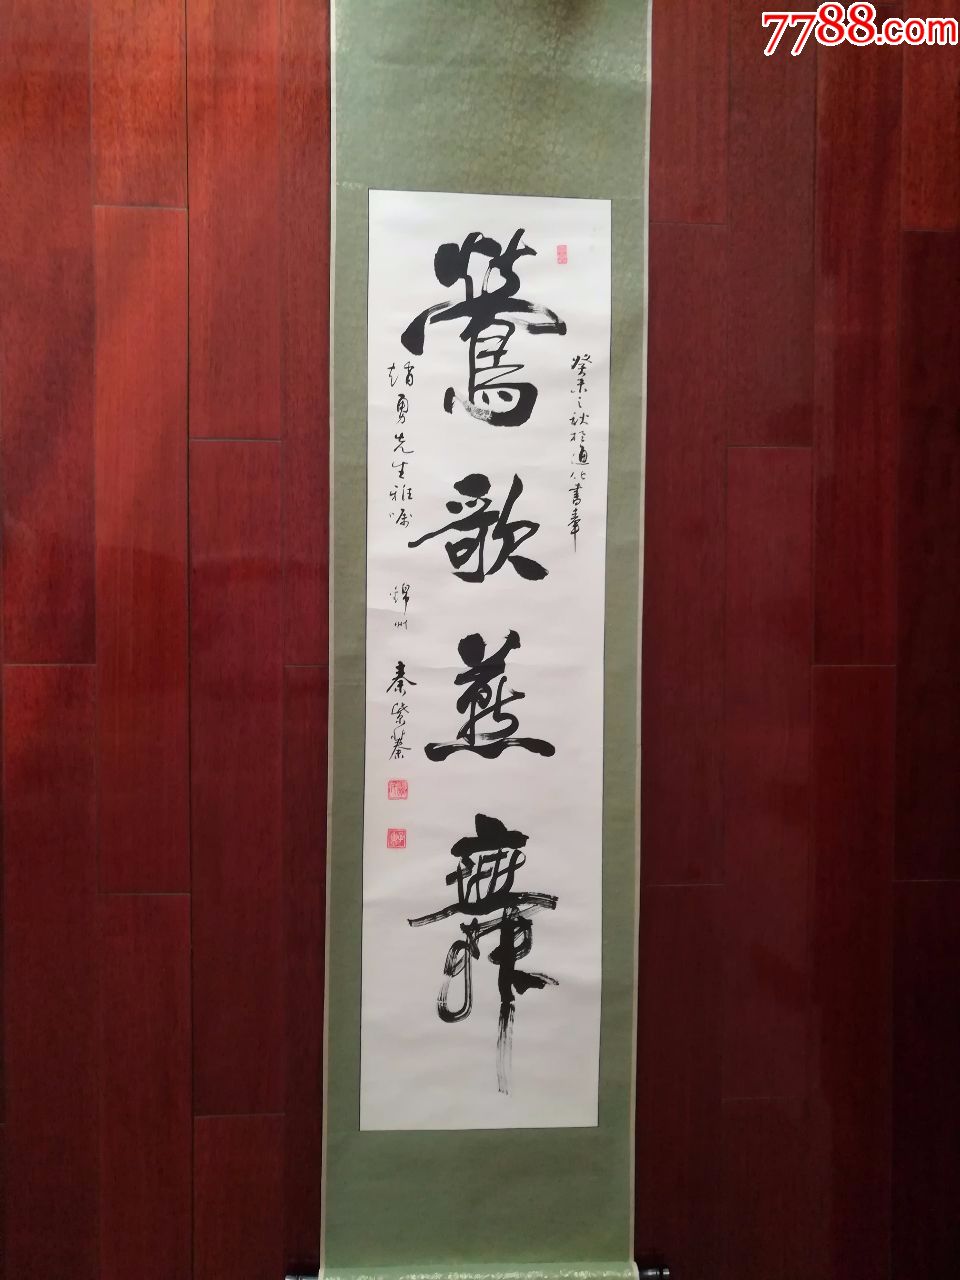 7788.com
癸未之秋於通化書奉
鶯歌燕舞
趙勇先生雅嘱
錦州 秦紫蓁